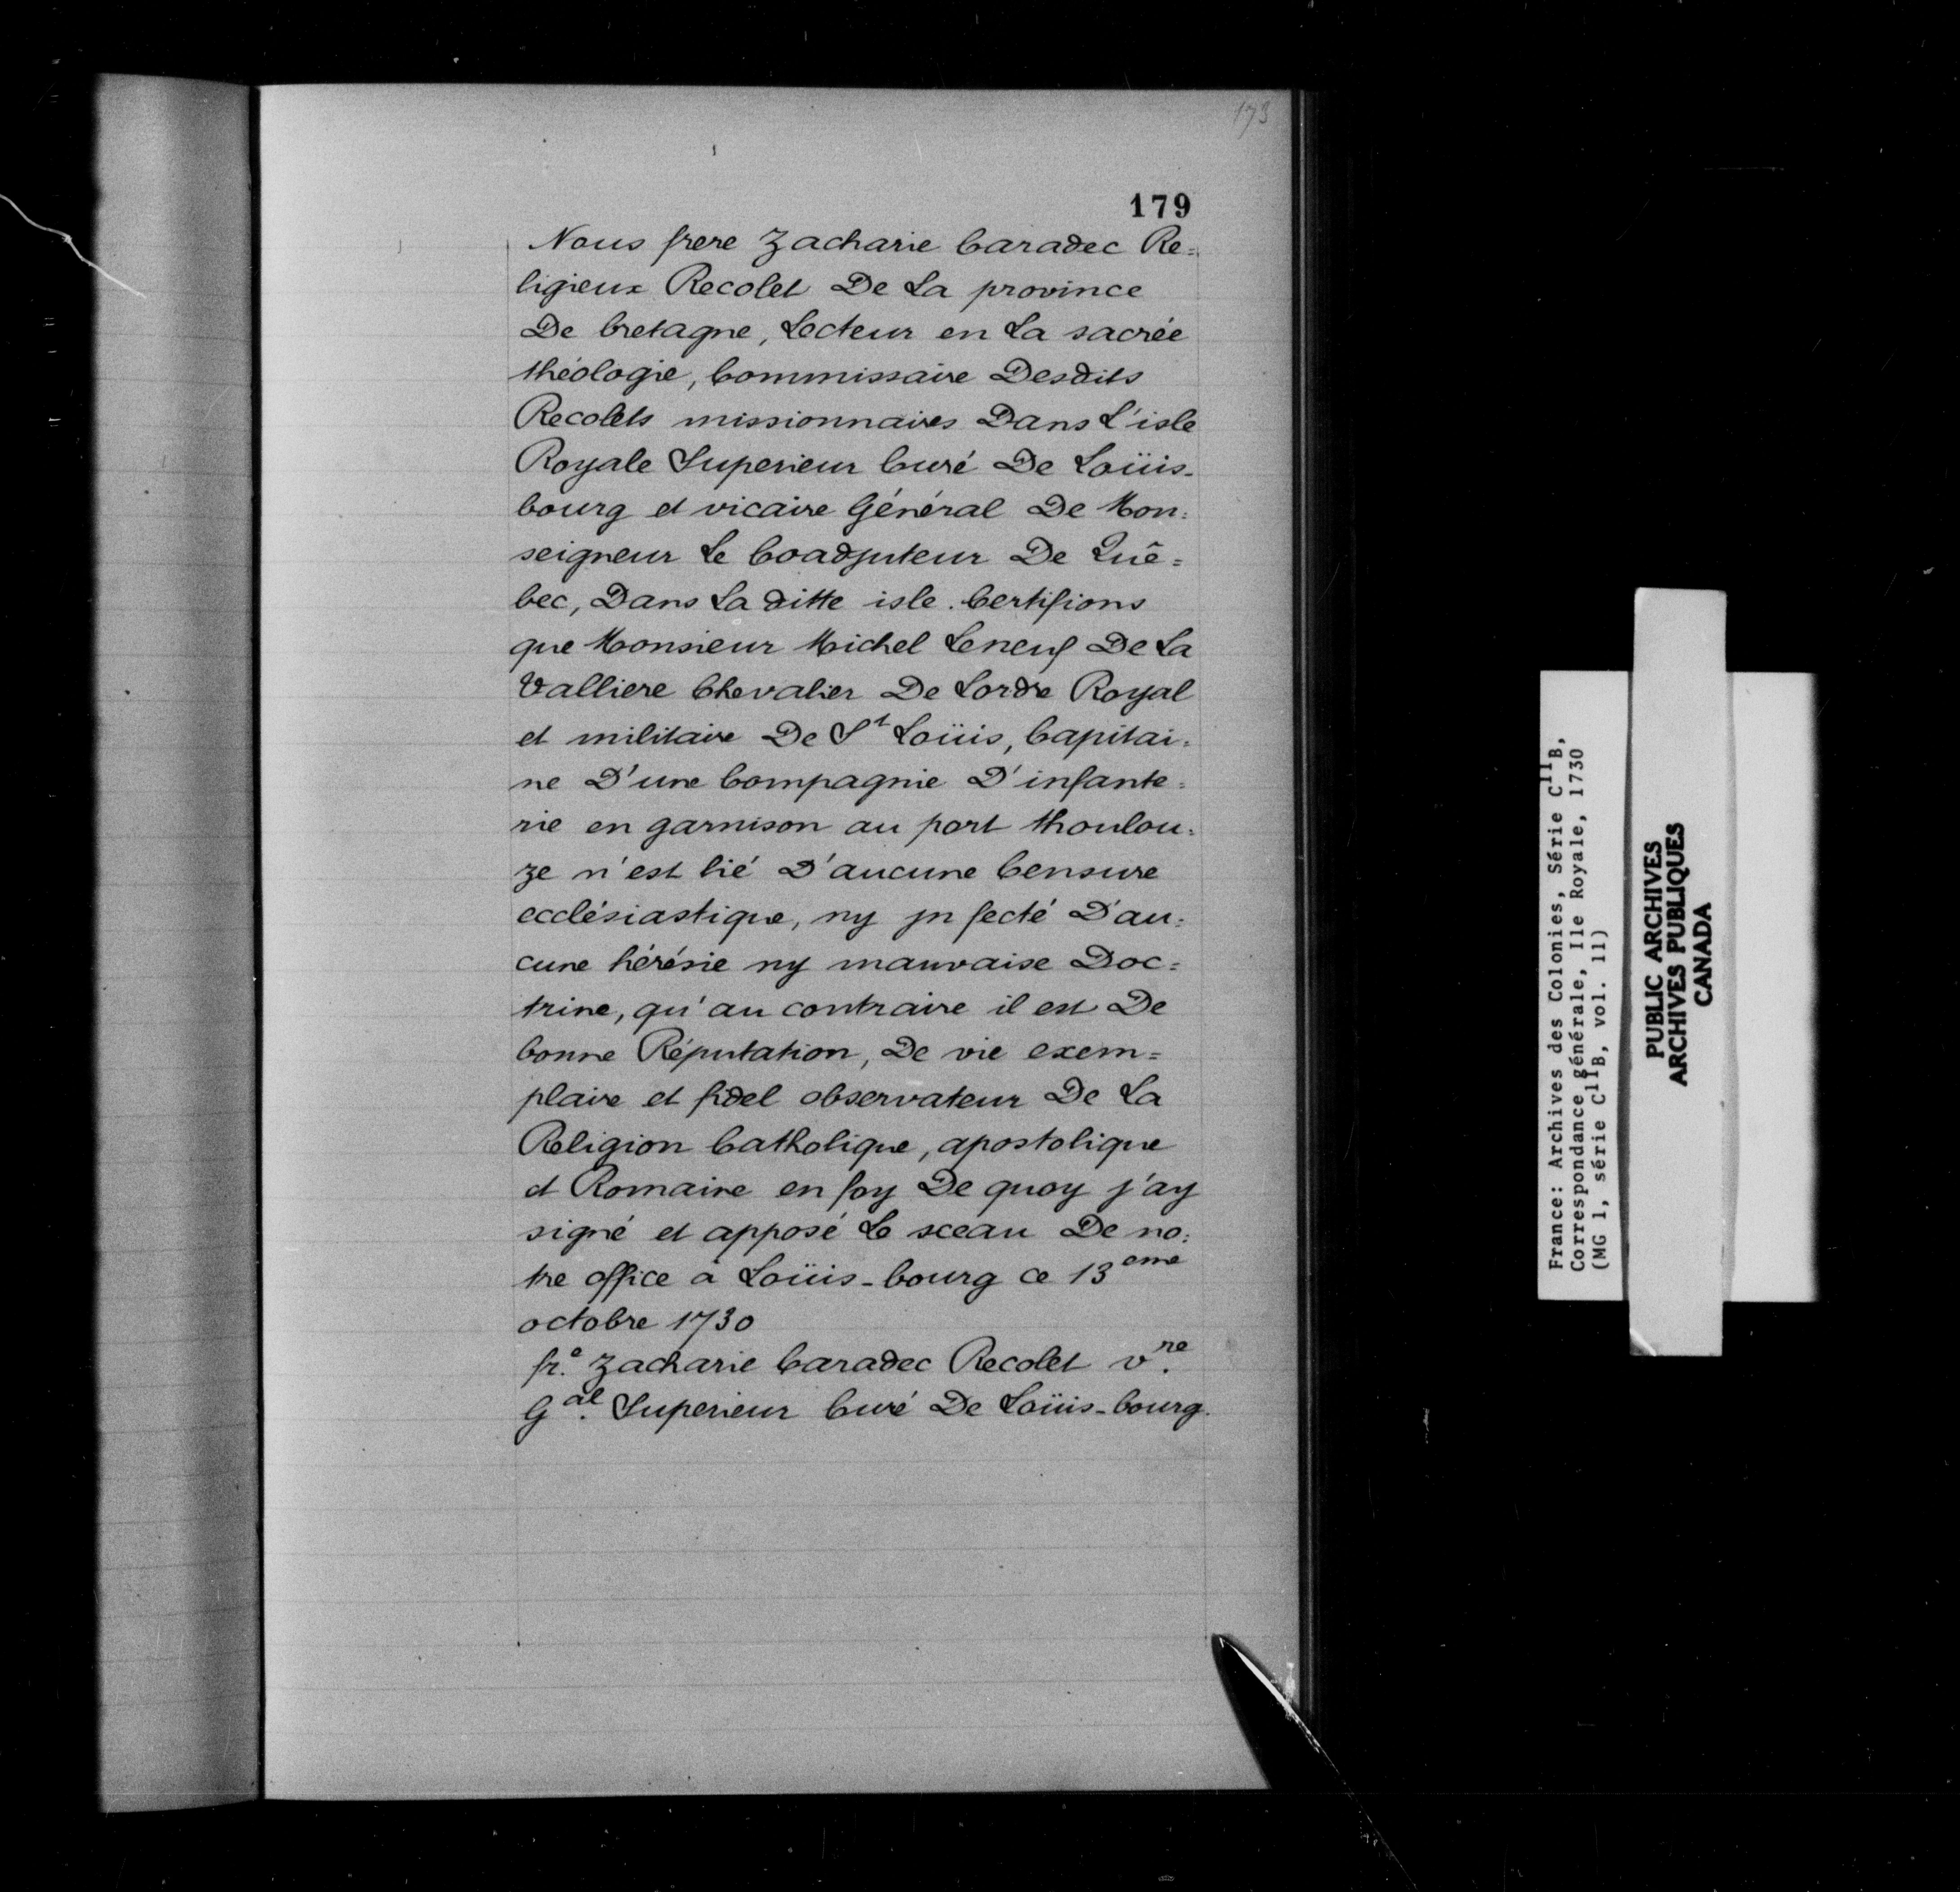 173
179
Nous frere Zacharie Caradec Re=
ligieux Recolet De La province
De bretagne, Lecteur en La sacrée
théologie, Commissaire Desdits
Recolets missionnaires Dans L'isle
Royale Superieur Curé De Loüis-
bourg et vicaire Général De Mon=
seigneur Le Coadjuteur De Quê=
bec, Dans La ditte isle. Certifions
que Monsieur Michel Leneuf De La
Valliere Chevalier De Lordre Royal
et militaire De St Loüis, Capitai=
ne D'une Compagnie D'infante=
rie en garnison au port thoulou=
ze n'est lié D'aucune Censure
ecclésiastique, ny jnfecté D'au=
cune hérésie ny mauvaise Doc=
trine, qu'au contraire il est De
bonne Réputation, De vie exem=
plaire et fidel observateur De La
Religion Catholique, apostolique
et Romaine en foy De quoy j'ay
signé et apposé Le sceau De no=
tre office à Loüis-bourg ce 13eme
octobre 1730
fr.e Zacharie Caradec Recolet v.re
G.al Superieur Curé De Loüis-bourg.
France: Archives des Colonies, Série C11B,
Correspondance générale, Ile Royale, 1730
(MG 1, série C11B, vol. 11)
PUBLIC ARCHIVES
ARCHIVES PUBLIQUES
CANADA